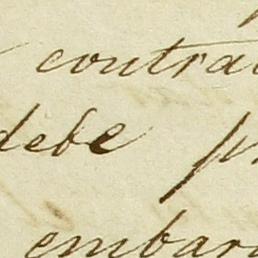 contra
debe p
embar